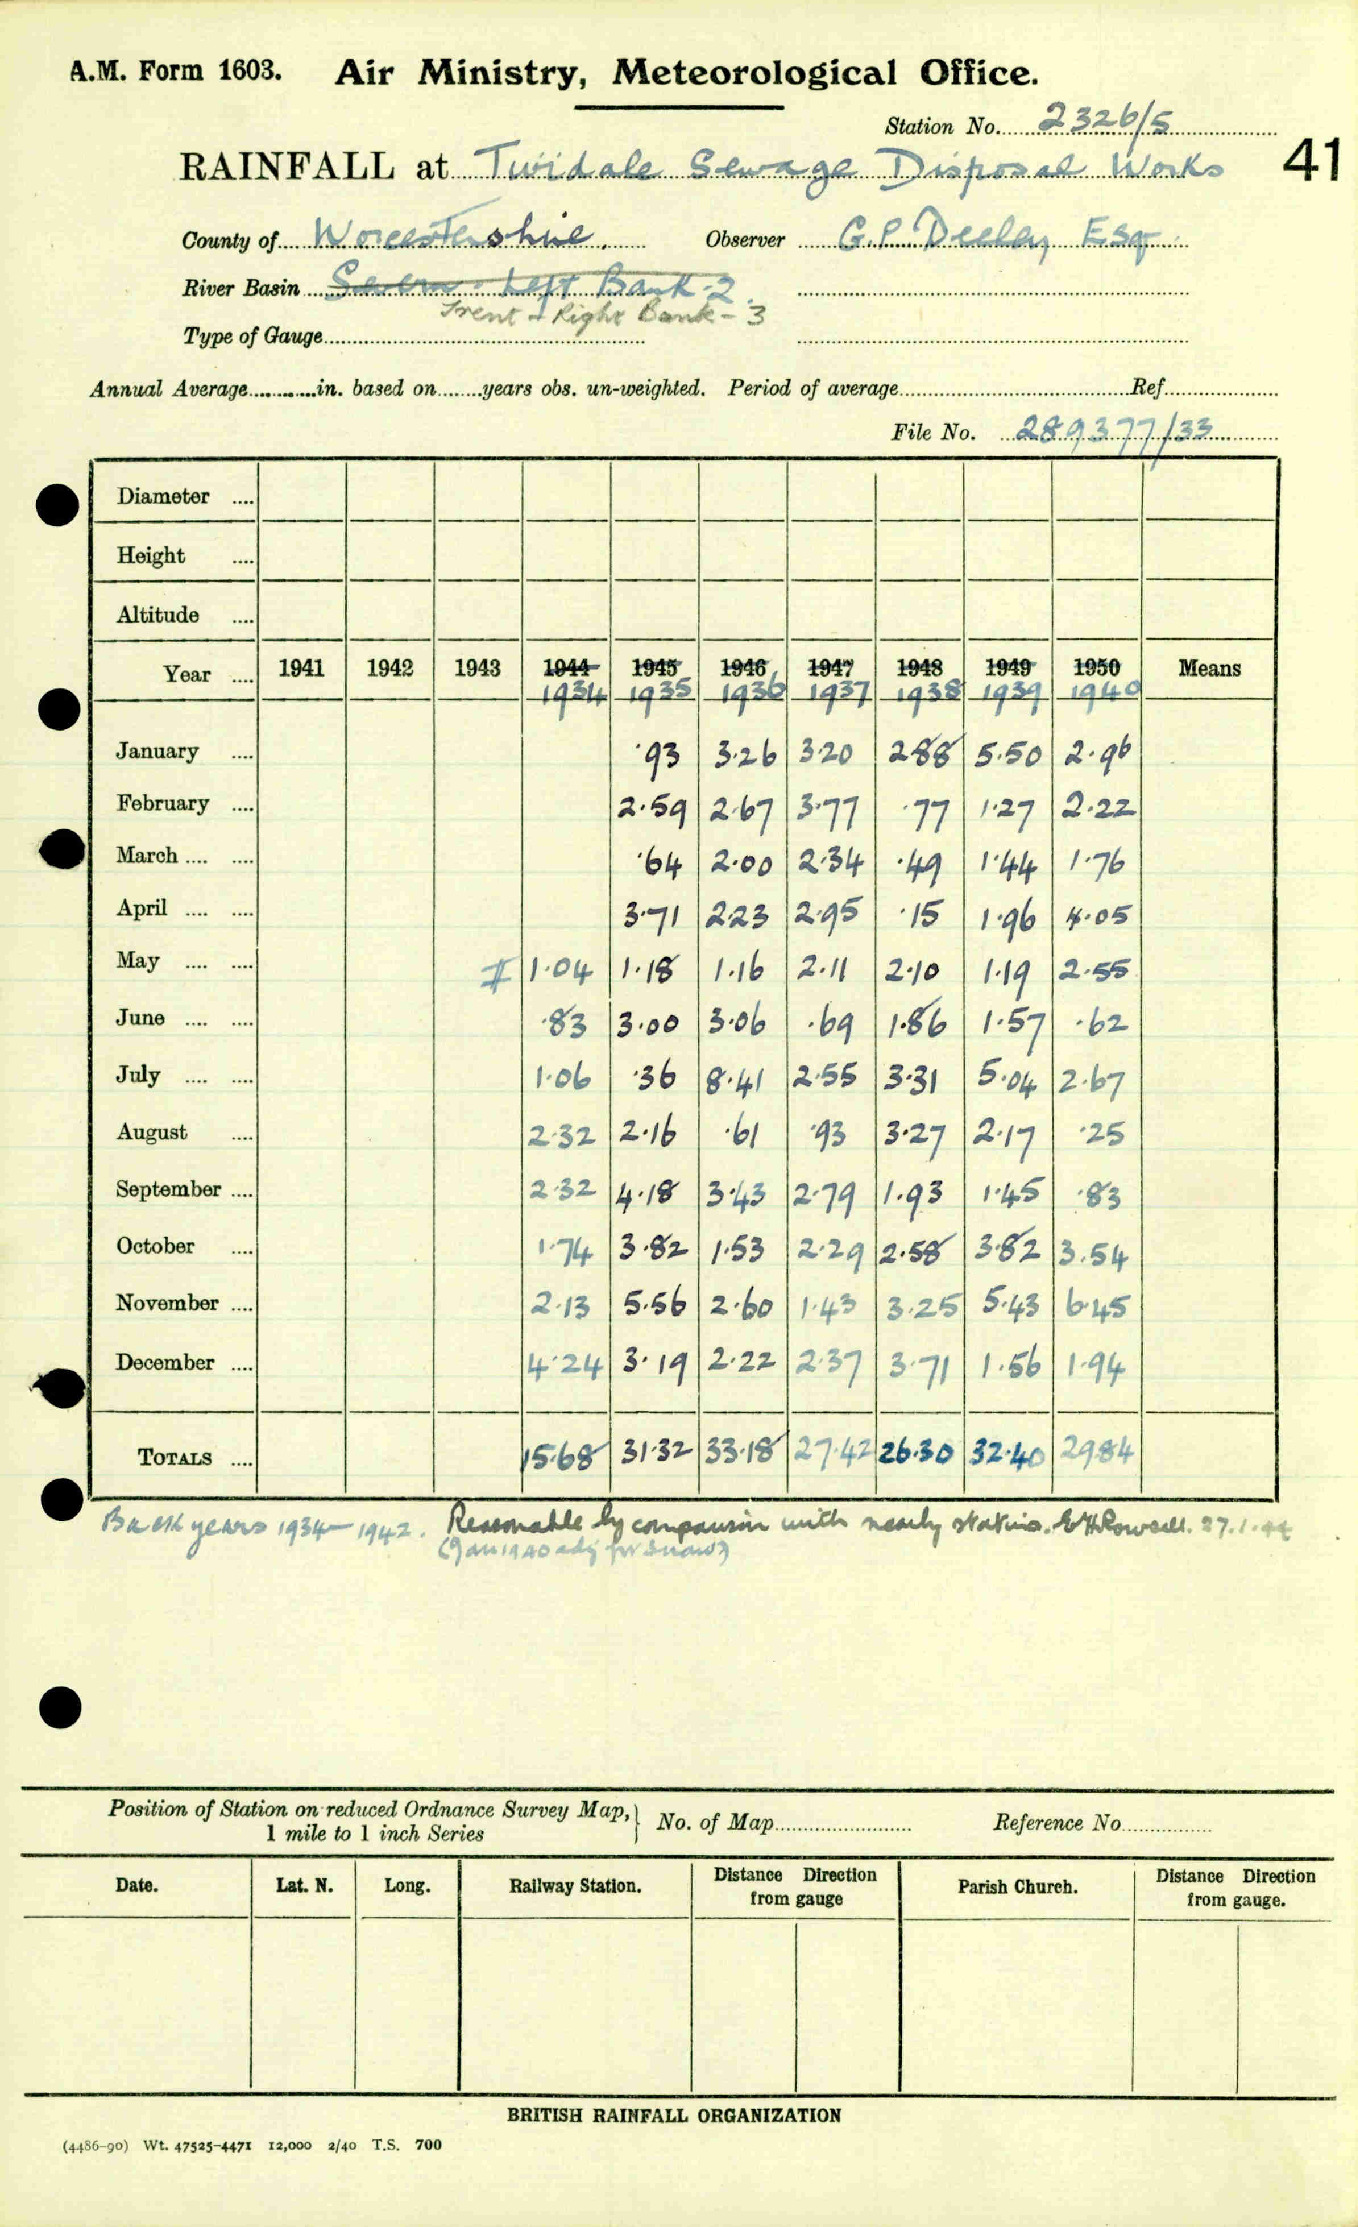 A.M. Form 1603. Air Ministry, Meteorological Office.
Station No. 2326/5
RAINFALL at Tividale Sewage Disposal Works 41
County of Worcestershire. Observer G.P. Deeley Esq.
River Basin Severn - Left Bank - 2.
Trent - Right Bank - 3
Type of Gauge
Annual Average in. based on years obs. un-weighted. Period of average Ref
File No. 289377/33
Diameter
Height
Altitude
Year 1941 1942 1943 1944 1945 1946 1947 1948 1949 1950 Means
1934 1935 1936 1937 1938 1939 1940
January .93 3.26 3.20 2.88 5.50 2.96
February 2.59 2.67 3.77 .77 1.27 2.22
March .64 2.00 2.34 .49 1.44 1.76
April 3.71 2.23 2.95 .15 1.96 4.05
May 1.04 1.18 1.16 2.11 2.10 1.19 2.55
June .83 3.00 3.06 .69 1.86 1.57 .62
July 1.06 .36 8.41 2.55 3.31 5.04 2.67
August 2.32 2.16 .61 .93 3.27 2.17 .25
September 2.32 4.18 3.43 2.79 1.93 1.45 .83
October 1.74 3.82 1.53 2.29 2.58 3.82 3.54
November 2.13 5.56 2.60 1.43 3.25 5.43 6.45
December 4.24 3.19 2.22 2.37 3.71 1.56 1.94
TOTALS 15.68 31.32 33.18 27.42 26.30 32.40 29.84
Back years 1934-1942. Reasonable by comparison with nearby stations. 27.1.44
(Jan 1940 adj for snow)
Position of Station on reduced Ordnance Survey Map, } No. of Map Reference No
1 mile to 1 inch Series
Date. Lat. N. Long. Railway Station. Distance from gauge Direction Parish Church. Distance from gauge. Direction
BRITISH RAINFALL ORGANIZATION
(4486-90) Wt. 47525-4471 12,000 2/40 T.S. 700